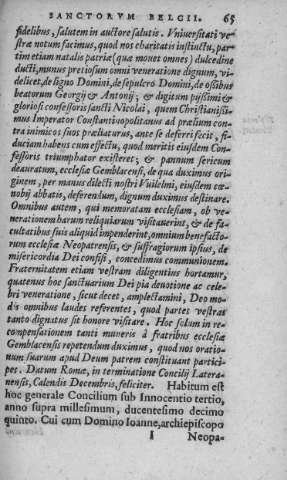 SANCTORVM BELGII. 65
fidelibus, salutem in auctore salutis. Vniuersitati ve-
stræ notum facimus, quod nos charitatis instinctu, par-
tim etiam natalis patriæ (qua mouet omnes) dulcedine
ducti, munus pretiosum omni veneratione dignum, vi-
delicet, de ligno Domini, de sepulcro Domini, de ossibus
beatorum Georgij & Antonij; & digitum pijssimi &
gloriosi confessoris sancti Nicolai, quem Christianissi-
mus Imperator Constantinopolitanus ad prælium con-
tra inimicos suos præliaturus, ante se deferri fecit, fi-
duciam habens cum effectu, quod meritis eiusdem Con-
fessoris triumphator existeret; & pannum sericum
deauratum, ecclesiæ Gemblacensi, de qua duximus ori-
ginem, per manus dilecti nostri Vuilelmi, eiusdem cœ-
nobij abbatis, deferendum, dignum duximus destinare.
Omnibus autem, qui memoratam ecclesiam, ob ve-
nerationem harum reliquiarum visitauerint, & de fa-
cultatibus suis aliquid impenderint, omnium benefacto-
rum ecclesiæ Neopatrensis, & suffragiorum ipsius, de
misericordia Dei confisi, concedimus communionem.
Fraternitatem etiam vestram diligentius hortamur,
quatenus hoc sanctuarium Dei pia deuotione ac cele-
bri veneratione, sicut decet, amplectamini, Deo mo-
dis omnibus laudes referentes, quod partes vestras
tanto dignatus sit honore visitare. Hoc solum in re-
compensationem tanti muneris à fratribus ecclesiæ
Gemblacensis repetendum duximus, quod nos oratio-
num suarum apud Deum patrem constituant partici-
pes. Datum Romæ, in terminatione Concilij Latera-
nensis, Calendis Decembris, feliciter. Habitum est
hoc generale Concilium sub Innocentio tertio,
anno supra millesimum, ducentesimo decimo
quinto. Cui cum Domino Ioanne, archiepiscopo
I Neopa-